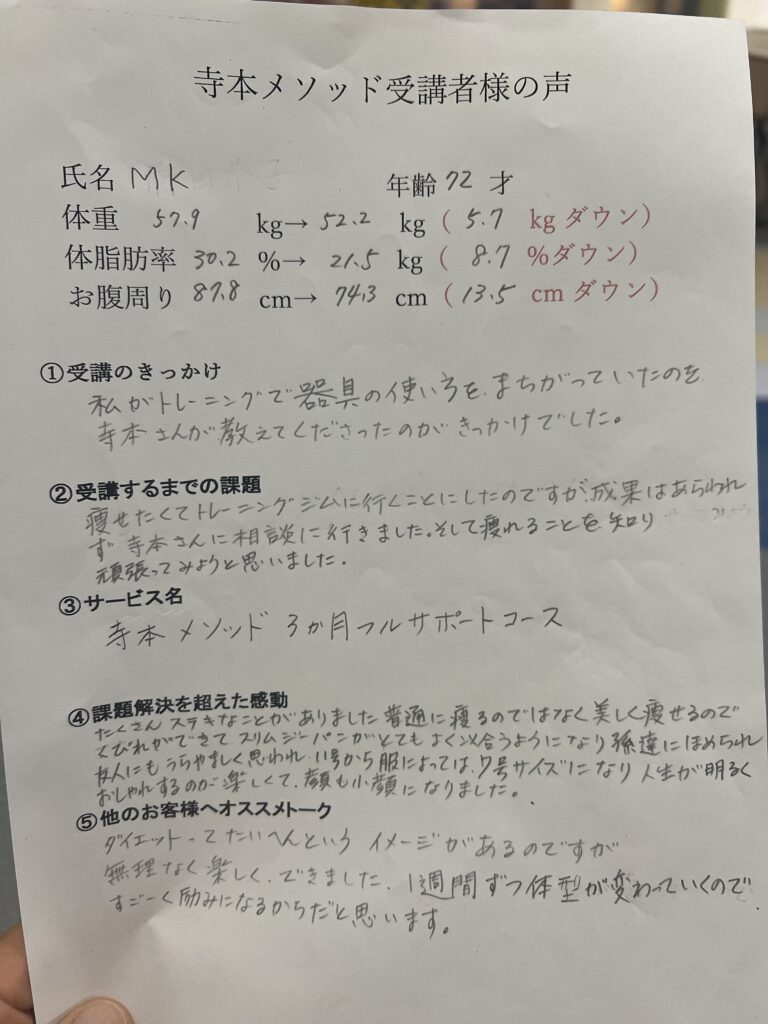 寺本メソッド受講者様の声
氏名 MK 年齢 72 才
体重 57.9 kg→ 52.2 kg ( 5.7 kg ダウン)
体脂肪率 30.2 %→ 21.5 kg ( 8.7 %ダウン)
お腹周り 87.8 cm→ 74.3 cm (13.5 cm ダウン)
①受講のきっかけ
私がトレーニングで器具の使い方を、まちがっていたのを
寺本さんが教えてくださったのがきっかけでした。
②受講するまでの課題
痩せたくてトレーニングジムに行くことにしたのですが、成果はあらわれ
ず 寺本さんに相談に行きました。そして痩れることを知り
頑張ってみようと思いました.
③サービス名
寺本メソッド 3か月フルサポートコース
④課題解決を超えた感動
たくさんステキなことがありました 普通に痩るのではなく美しく痩せるので
くびれができて スリムジーパンがとてもよく以合うようになり 孫達にほめられ
友人にもうらやましく思われ 11号から服によっては、7号サイズになり人生が明るく
おしゃれするのが楽しくて、顔も小顔になりました。
⑤他のお客様へオススメトーク
ダイエットってたいへんという イメージがあるのですが
無理なく楽しく、できました、1週間ずつ体型が変わっていくので
すごーく励みになるからだと思います。